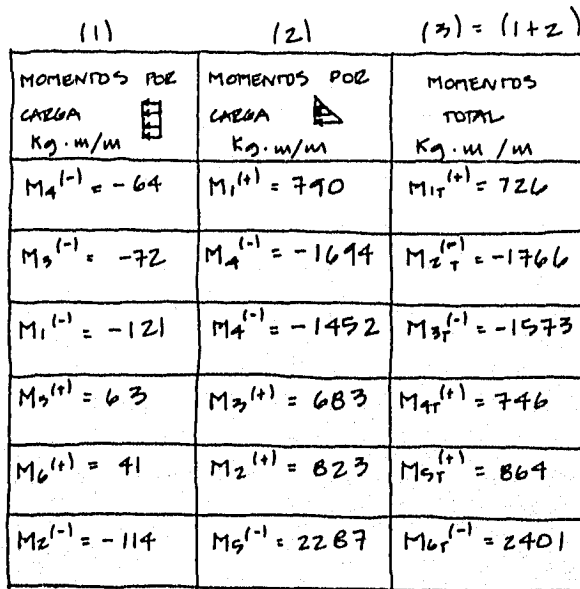 (1) (2) (3) = (1+2)
MOMENTOS POR MOMENTOS POR MOMENTOS
CARGA CARGA TOTAL
Kg·m/m Kg·m/m Kg·m/m
M4(-) = -64 M1(+) = 790 M1T(+) = 726
M3(-) = -72 M4(-) = -1694 M2T(-) = -1766
M1(-) = -121 M4(-) = -1452 M3T(-) = -1573
M5(+) = 63 M3(+) = 683 M4T(+) = 746
M6(+) = 41 M2(+) = 823 M5T(+) = 864
M2(-) = -114 M5(-) = 2287 M6T(-) = 2401